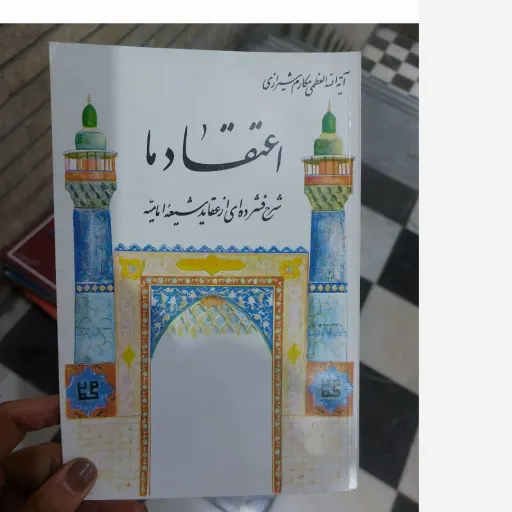 آیة الله العظمی مکارم شیرازی
اعتقاد ما
شرح فشرده‌ای از عقاید شیعه امامیّه